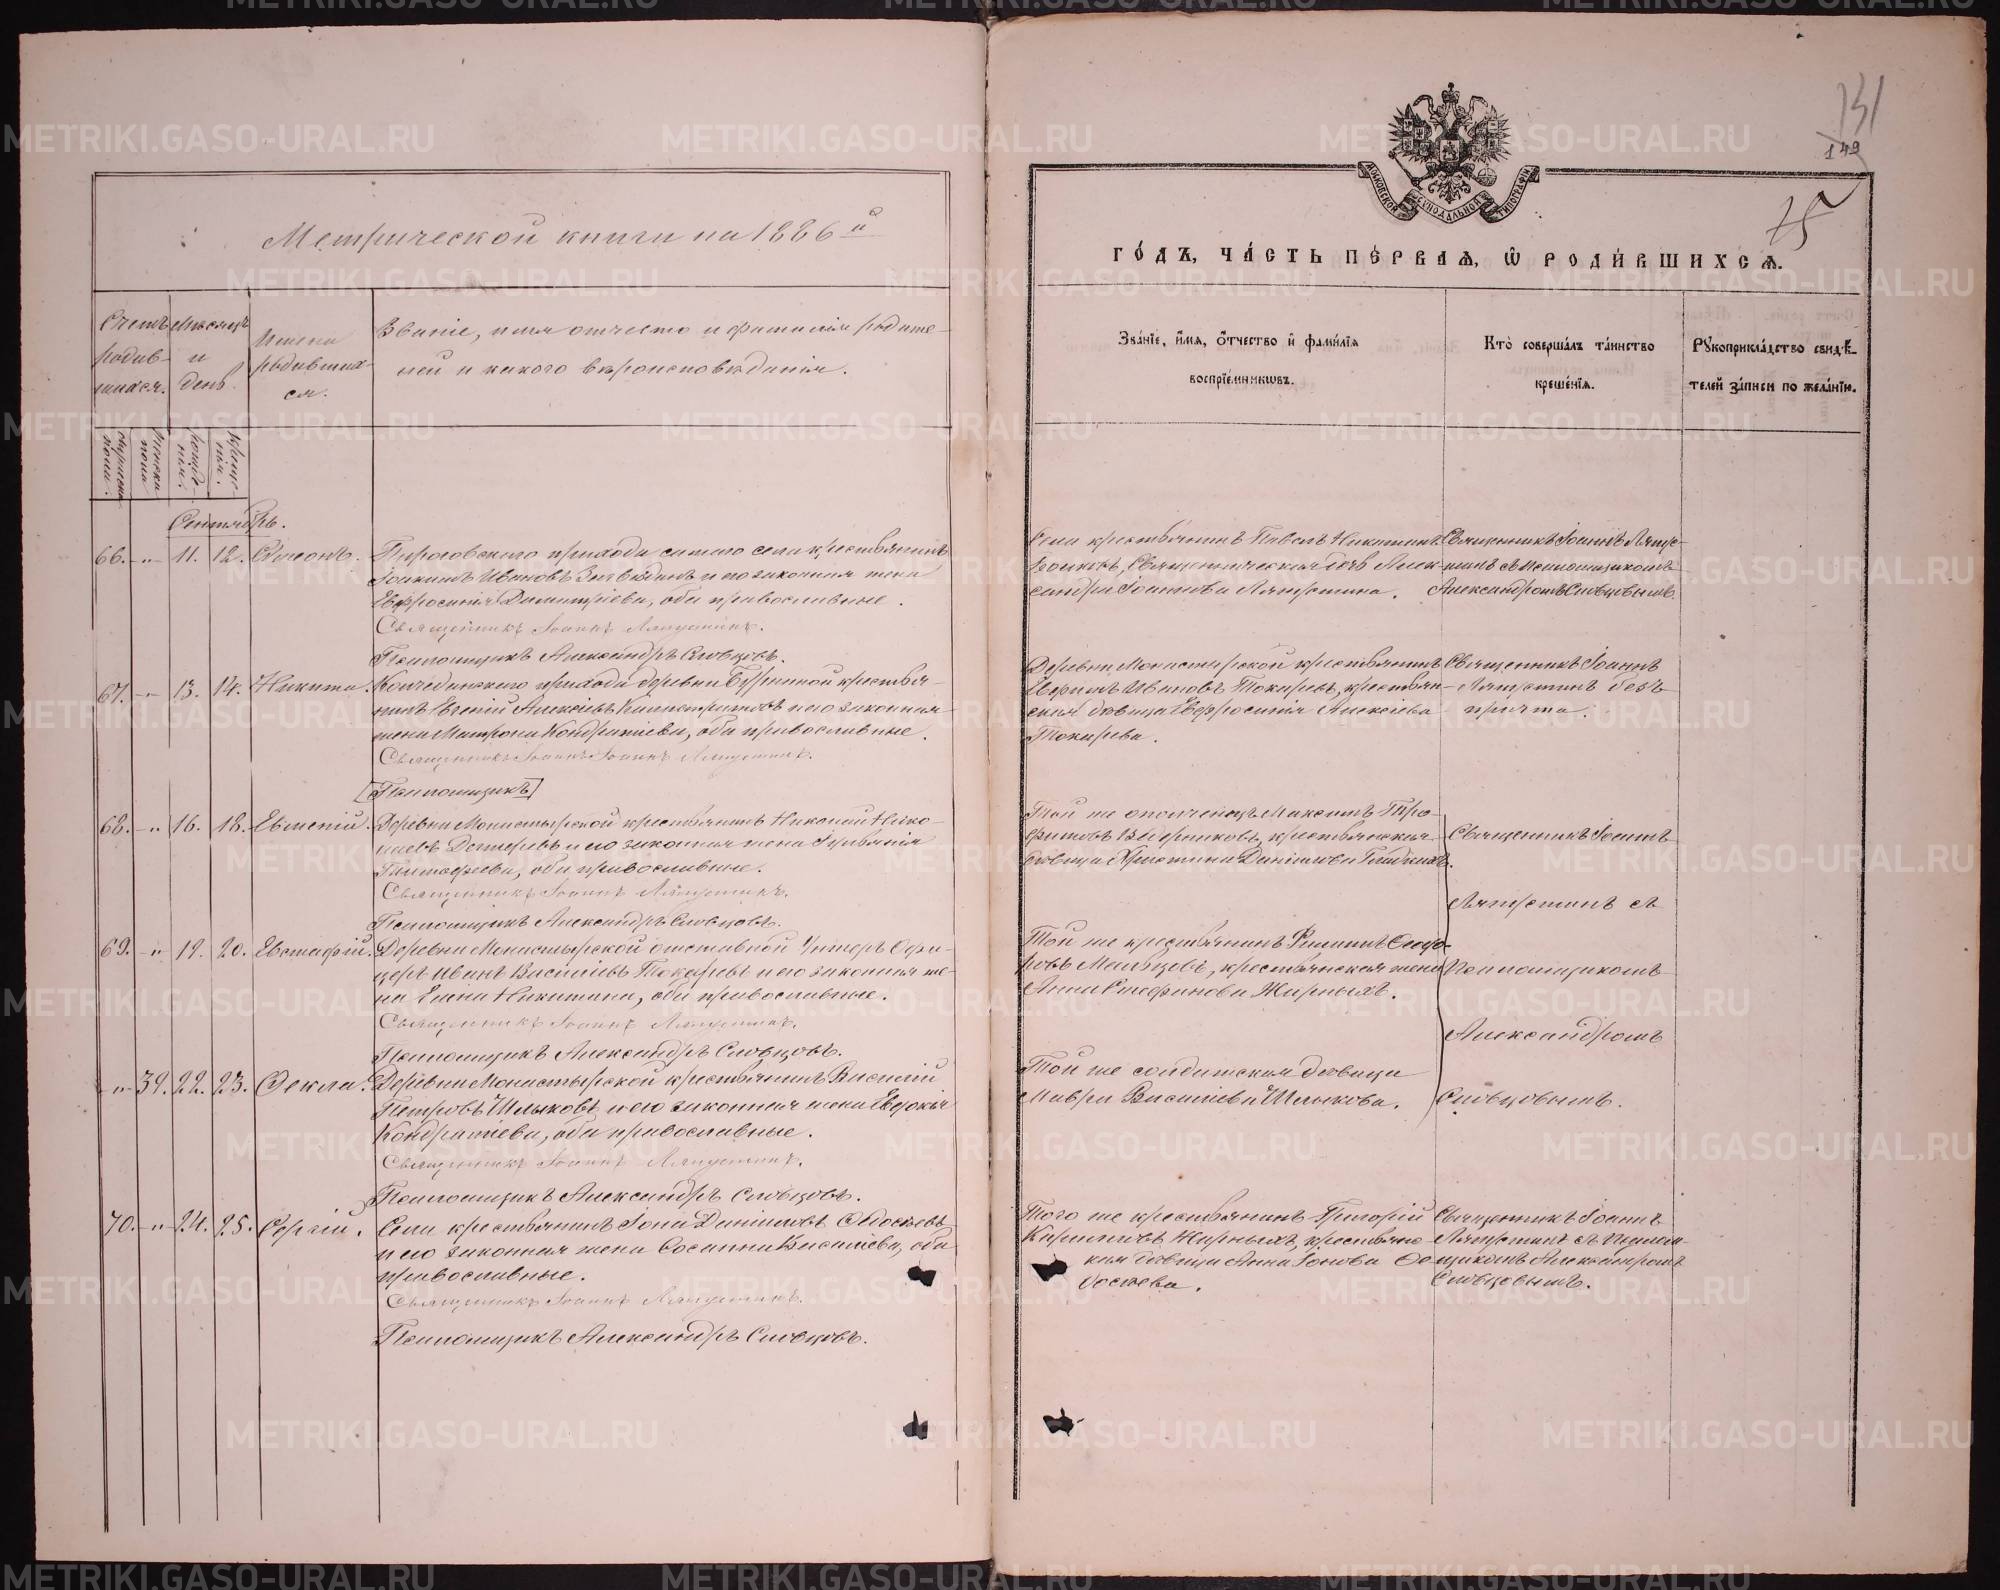 Метрической книги на 1886й
Счетъ родив-шихся.
Мѣсяцъ и день.
Имена родивших-ся.
Званіе, имя отчество и фамилія родите-
лей и какого вѣроисповѣданія.
мужеска пола.
женска пола
рожде-нія.
креще-нія.
Сентябрь.
66. -"- 11. 12. Симеонъ.
прихода самого села крестьянинъ
Ивановъ и его законная жена
Евфросинія Димитріева, оба православные.
Священникъ Іоаннъ Ляпустинъ.
Псаломщикъ Александръ Словцовъ.
67. -"- 13. 14. Никита.
прихода деревни крестья-
нинъ Алексѣевъ и его законная
жена Матрона Кондратіева, оба православные.
Священникъ Іоаннъ Іоаннъ Ляпустинъ.
[Псаломщикъ]
68. -"- 16. 18. Евменій.
Деревни Монастырской крестьянинъ Николай Нико-
лаевъ и его законная жена
Тимофеева, оба православные.
Священникъ Іоаннъ Ляпустинъ.
Псаломщикъ Александръ Словцовъ.
69. -"- 19. 20. Евстафій.
Деревни Монастырской отставной Унтеръ Офи-
церъ Иванъ Василіевъ Токаревъ и его законная же-
на Елена Никитина, оба православные.
Священникъ Іоаннъ Ляпустинъ.
Псаломщикъ Александръ Словцовъ.
-"- 39. 22. 23. Ѳекла.
Деревни Монастырской крестьянинъ Василій
Петровъ Шлыковъ и его законная жена Евдокія
Кондратіева, оба православные.
Священникъ Іоаннъ Ляпустинъ.
Псаломщикъ Александръ Словцовъ.
70. -"- 24. 25. Сергій.
Села крестьянинъ Іона Даниловъ Ѳедосѣевъ
и его законная жена Сосанна Василіева, оба
православные.
Священникъ Іоаннъ Ляпустинъ.
Псаломщикъ Александръ Словцовъ.
131
149
75
МОСКОВСКОЙ СѴНОДАЛЬНОЙ ТИПОГРАФІИ
ГО́ДЪ, ЧА́СТЬ ПЕ́РВАѦ, Ѿ РОДИ́ВШИХСѦ.
Зва́нїе, и́мѧ, о́тчество и҆ фами́лїѧ
воспрїе́мникѡвъ.
Кто̀ соверша́лъ та́инство
креще́нїѧ.
Рꙋкоприкла́дство свидѣ́-
телей за́писи по жела́нїю.
Села крестьянинъ Павелъ Никитинъ
Волковъ, Священническая дочь Алек-
сандра Іоаннова Ляпустина.
Священникъ Іоаннъ Ляпус-
тинъ съ Псаломщикомъ
Александромъ Словцовымъ.
Деревни Монастырской крестьянинъ
Ивановъ Токаревъ, крестьян-
ская дѣвица Евфросинія Алексіева
Токарева.
Священникъ Іоаннъ
Ляпустинъ безъ
причта.
Той же ополченецъ Максимъ Тро-
фимовъ крестьянская
дѣвица Христина Данилова
Священникъ Іоаннъ
Ляпустинъ съ
Псаломщикомъ
Александромъ
Словцовымъ.
Той же крестьянинъ Филиппъ Сидо-
ровъ крестьянская жена
Анна Жирныхъ.
Той же солдатская дѣвица
Мавра Василіева Шлыкова.
Того же крестьянинъ Григорій
Кирилловъ Жирныхъ, крестьянс-
кая дѣвица Анна Іонова Ѳе-
досѣева.
Священникъ Іоаннъ
Ляпустинъ съ Псалом-
щикомъ Александромъ
Словцовымъ.
METRIKI.GASO-URAL.RU